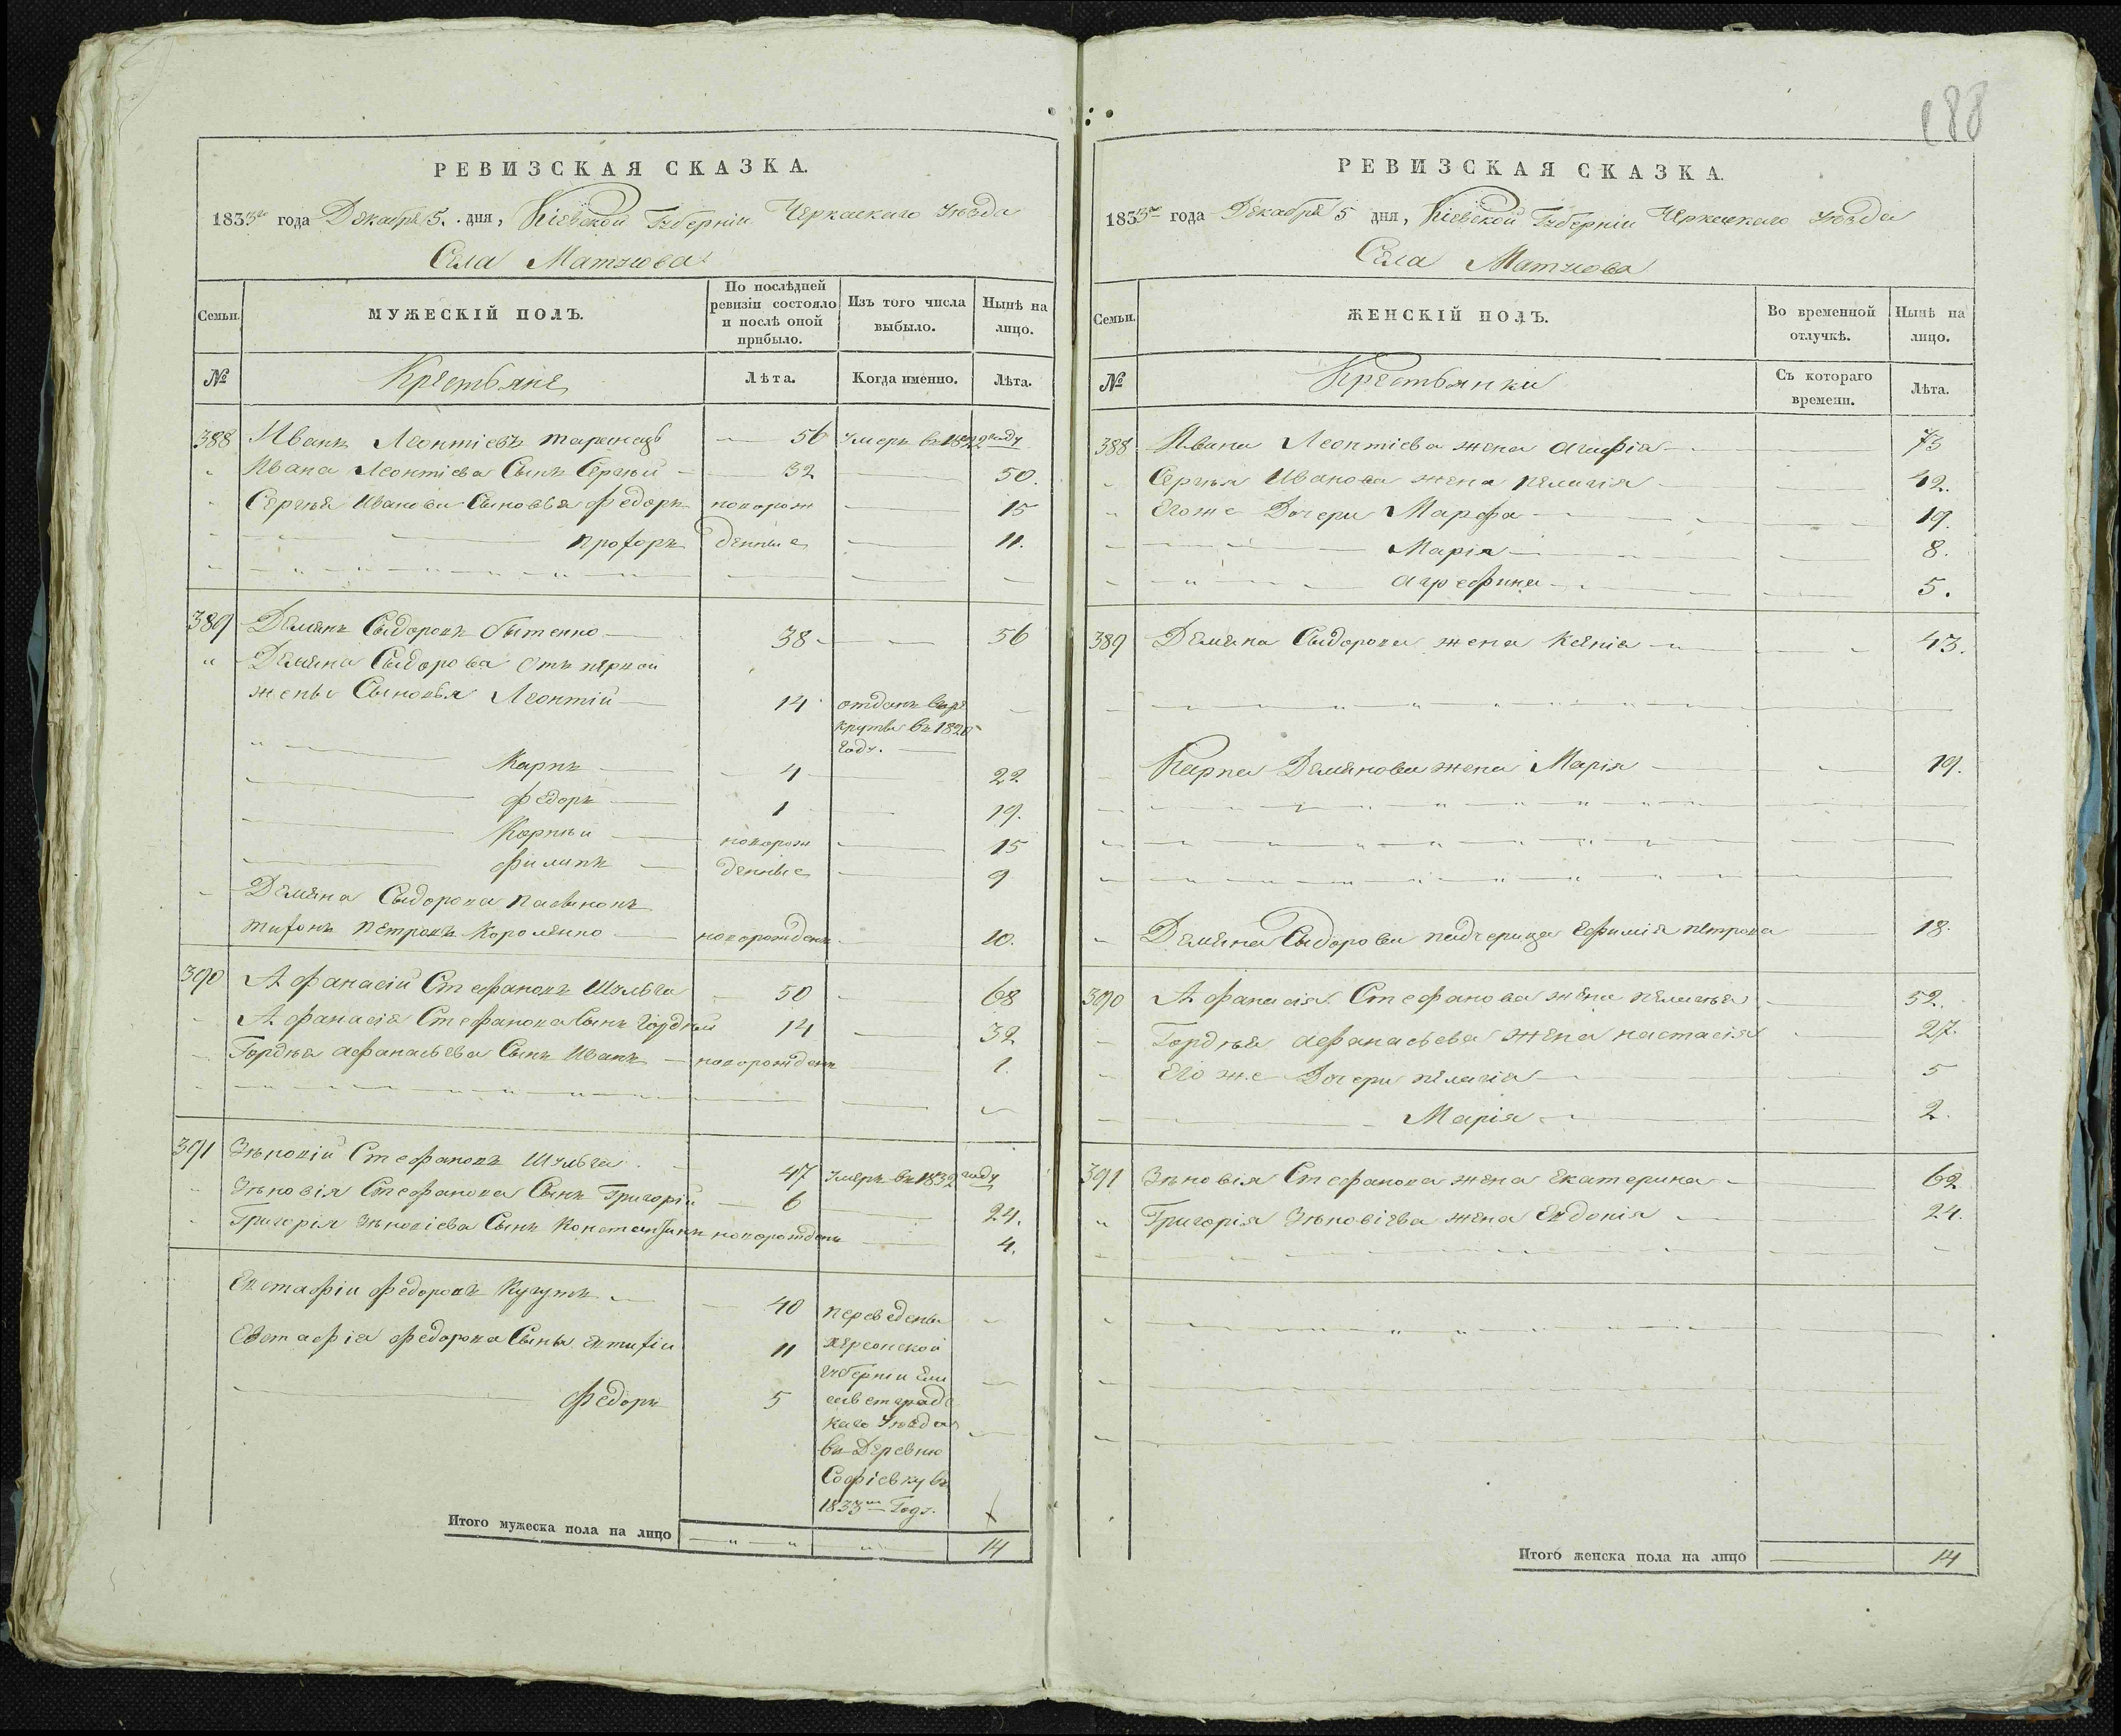 188
РЕВИЗСКАЯ СКАЗКА.
1833го года Декабря 5. дня, Кіевской Губерніи Черкаскаго Уѣзда
Села Матусова
Семьи.
МУЖЕСКІЙ ПОЛЪ.
По послѣдней ревизіи состояло и послѣ оной прибыло.
Изъ того числа выбыло.
Нынѣ на лицо.
№
Крестьяне
Лѣта.
Когда именно.
Лѣта.
388 Иванъ Леонтіевъ 56 умеръ въ году
Ивана Леонтіева Сынъ Сергѣй 32 50.
Сергѣя Иванова Сыновья Федоръ новорож 15
Прохоръ денные 11.
389 Демянъ Сыдоровъ 38 56
" Демяна Сыдорова отъ первой
жены Сыновья Леонтій 14 отданъ въ ре
круты въ
году.
Карпъ 4 22
Федоръ 1 19.
Корнѣй новорож 15
Филипъ денные 9
Демяна Сыдорова пасынокъ
Тихонъ Петровъ новорожденъ 10.
390 Афанасій Стефановъ Шульга 50 68
Афанасія Стефанова Сынъ Гордѣй 14 32
Гордѣя Афанасьева Сынъ Иванъ новорожденъ 1.
391 Зѣновій Стефановъ Шульга 47 умеръ въ 1832 году
Зѣновія Стефанова Сынъ Григорій 6 24.
Григорія Зѣновіева Сынъ Константинъ новорожденъ 4.
Евстафій Федоровъ 40 переведены
Евстафія Федорова Сыны Евтихій 11 Херсонской
Губерніи Ели
Федоръ 5 саветградс
каго Уѣзда
въ Деревню
Софіевку въ
1833мъ Году.
Итого мужеска пола на лицо 14
РЕВИЗСКАЯ СКАЗКА.
1833го года Декабря 5 дня, Кіевской Губерніи Черкаскаго Уѣзда
Села Матусова
Семьи.
ЖЕНСКІЙ ПОЛЪ.
Во временной отлучкѣ.
Нынѣ на лицо.
№
Крестьянки
Съ котораго времени.
Лѣта.
388 Ивана Леонтіева жена Агафія 73
Сергѣя Иванова жена Пелагія 42.
Егоже Дочери Марфа 19.
Марія 8.
Агрефина 5.
389 Демяна Сыдорова жена Ксенія 43.
Карпа Демянова жена Марія 19.
Демяна Сыдорова падчерица Ефимія Петрова 18.
390 Афанасія Стефанова жена Пелагѣя 52.
Гордѣя Афанасьева жена Настасія 27.
Его же Дочери Пелагія 5
Марія 2.
391 Зѣновія Стефанова жена Екатерина 62
" Григорія Зѣновіева жена Евдокія 24.
Итого женска пола на лицо 14